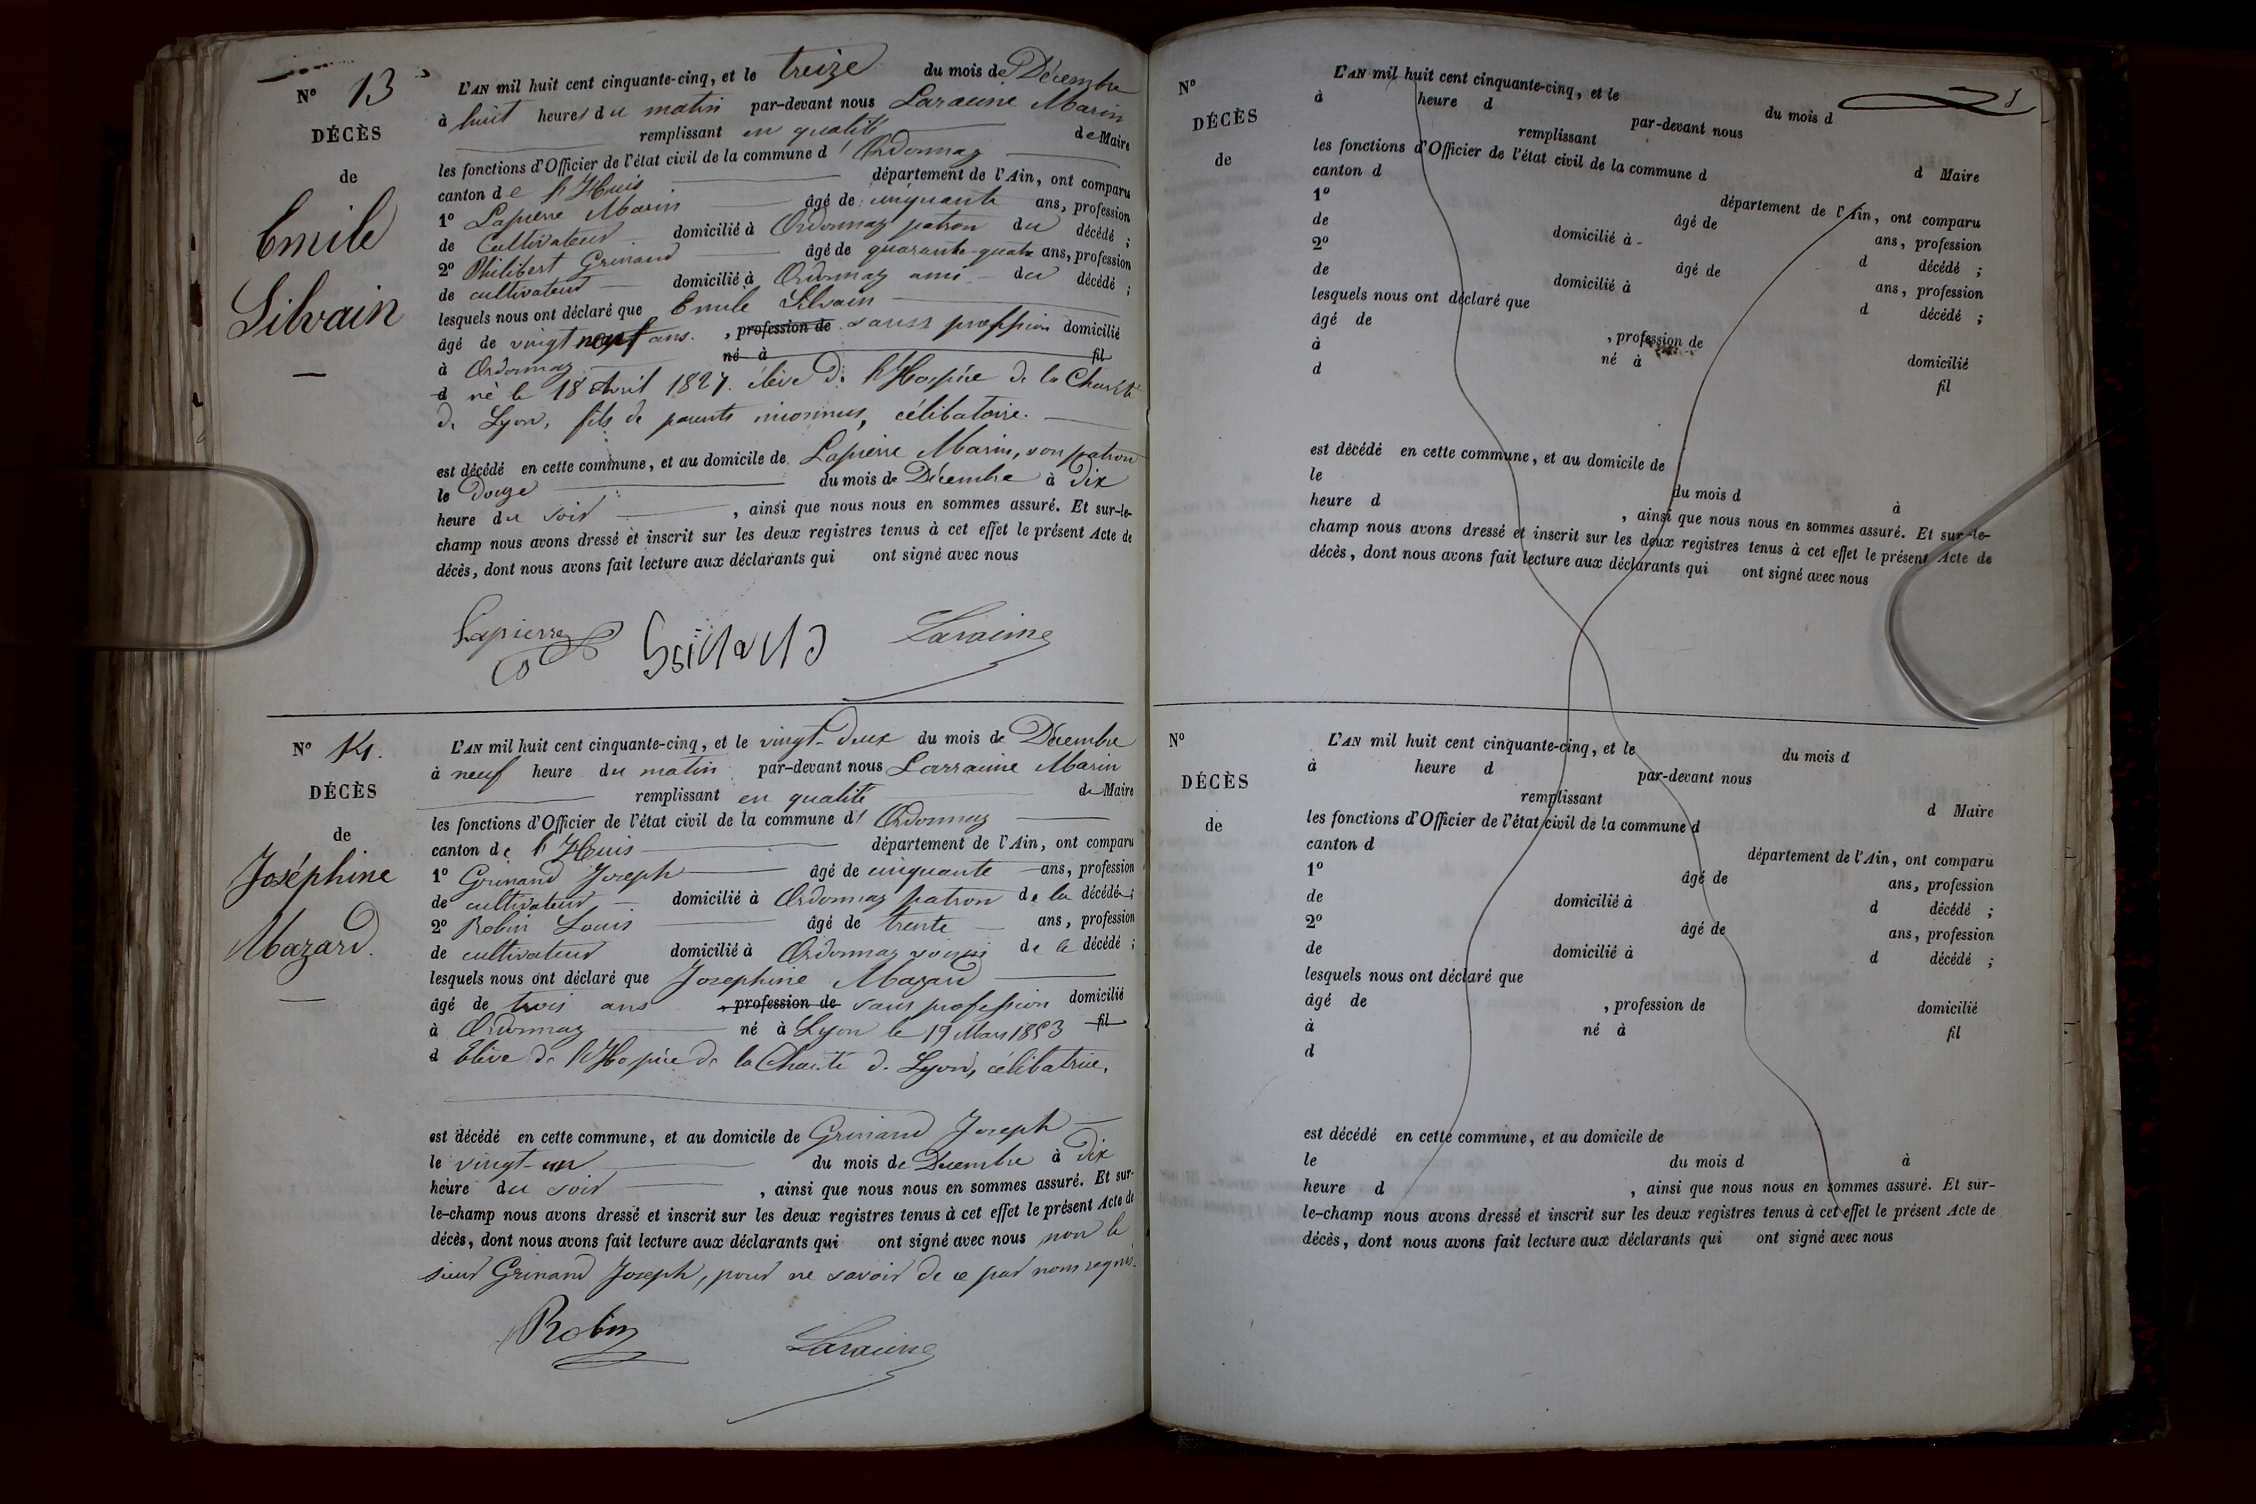 N° 13
DÉCÈS
de
Emile
Silvain
L'AN mil huit cent cinquante-cinq, et le treize du mois de Décembre
à huit heures du matin par-devant nous Laraine Marin
remplissant en qualité de Maire
les fonctions d'Officier de l'état civil de la commune d'Ordonnaz
canton de l'Huis département de l'Ain, ont comparu
1° Lapierre Marin âgé de cinquante ans, profession
de cultivateur domicilié à Ordonnaz patron du décédé ;
2° Philibert Grinand âgé de quarante-quatre ans, profession
de cultivateur domicilié à Ordonnaz ami du décédé ;
lesquels nous ont déclaré que Emile Silvain
âgé de vingt neuf ans. , profession de sans profession domicilié
à Ordonnaz né à fil
d né le 18 Avril 1827. élève de l'Hospice de la Charité
de Lyon, fils de parents inconnus, célibataire.
est décédé en cette commune, et au domicile de Lapierre Marin, son patron
le Douze du mois de Décembre à Dix
heure du soir , ainsi que nous nous en sommes assuré. Et sur-le-
champ nous avons dressé et inscrit sur les deux registres tenus à cet effet le présent Acte de
décès, dont nous avons fait lecture aux déclarants qui ont signé avec nous
Lapierre Laraine
N° 14.
DÉCÈS
de
Joséphine
Mazard.
L'AN mil huit cent cinquante-cinq, et le vingt-deux du mois de Décembre
à neuf heure du matin par-devant nous Larraine Marin
remplissant en qualité de Maire
les fonctions d'Officier de l'état civil de la commune d'Ordonnaz
canton de l'Huis département de l'Ain, ont comparu
1° Grinand Joseph âgé de cinquante ans, profession
de cultivateur domicilié à Ordonnaz patron de la décédée ;
2° Robin Louis âgé de trente ans, profession
de cultivateur domicilié à Ordonnaz voisin de la décédé ;
lesquels nous ont déclaré que Josephine Mazard
âgé de trois ans , profession de sans profession domicilié
à Ordonnaz né à Lyon le 19 Mars 1853 fil
d Elève de l'Hospice de la Charité de Lyon, célibatrice.
est décédé en cette commune, et au domicile de Grinand Joseph
le vingt-un du mois de Décembre à Dix
heure du soir , ainsi que nous nous en sommes assuré. Et sur-
le-champ nous avons dressé et inscrit sur les deux registres tenus à cet effet le présent Acte de
décès, dont nous avons fait lecture aux déclarants qui ont signé avec nous non le
sieur Grinand Joseph, pour ne savoir de ce par nous requis.
Robin Laraine
N°
DÉCÈS
de
L'AN mil huit cent cinquante-cinq, et le du mois d
à heure d par-devant nous
remplissant d Maire
les fonctions d'Officier de l'état civil de la commune d
canton d département de l'Ain, ont comparu
1° âgé de ans, profession
de domicilié à d décédé ;
2° âgé de ans, profession
de domicilié à d décédé ;
lesquels nous ont déclaré que
âgé de , profession de domicilié
à né à fil
d
est décédé en cette commune, et au domicile de
le du mois d à
heure d , ainsi que nous nous en sommes assuré. Et sur-le-
champ nous avons dressé et inscrit sur les deux registres tenus à cet effet le présent Acte de
décès, dont nous avons fait lecture aux déclarants qui ont signé avec nous
N°
DÉCÈS
de
L'AN mil huit cent cinquante-cinq, et le du mois d
à heure d par-devant nous
remplissant d Maire
les fonctions d'Officier de l'état civil de la commune d
canton d département de l'Ain, ont comparu
1° âgé de ans, profession
de domicilié à d décédé ;
2° âgé de ans, profession
de domicilié à d décédé ;
lesquels nous ont déclaré que
âgé de , profession de domicilié
à né à fil
d
est décédé en cette commune, et au domicile de
le du mois d à
heure d , ainsi que nous nous en sommes assuré. Et sur-
le-champ nous avons dressé et inscrit sur les deux registres tenus à cet effet le présent Acte de
décès, dont nous avons fait lecture aux déclarants qui ont signé avec nous